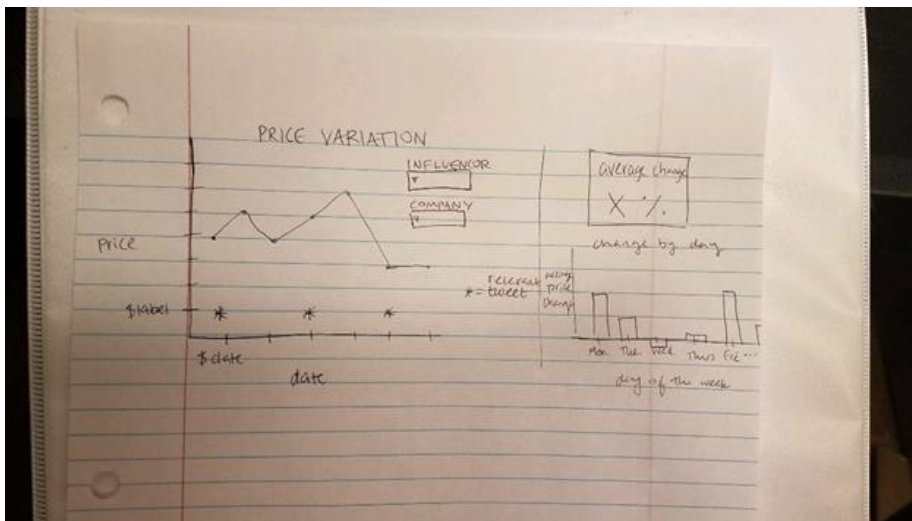 PRICE VARIATION
INFLUENCOR
COMPANY
price
$label
* = relevant
tweet
$date
date
average change
X %
change by day
price
change
Mon Tue Wed Thurs Fri ...
day of the week